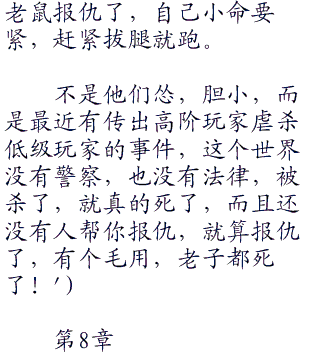 老鼠报仇了，自己小命要
紧，赶紧拔腿就跑。
不是他们怂，胆小，而
是最近有传出高阶玩家虐杀
低级玩家的事件，这个世界
没有警察，也没有法律，被
杀了，就真的死了，而且还
没有人帮你报仇，就算报仇
了，有个毛用，老子都死
了！′）
第8章